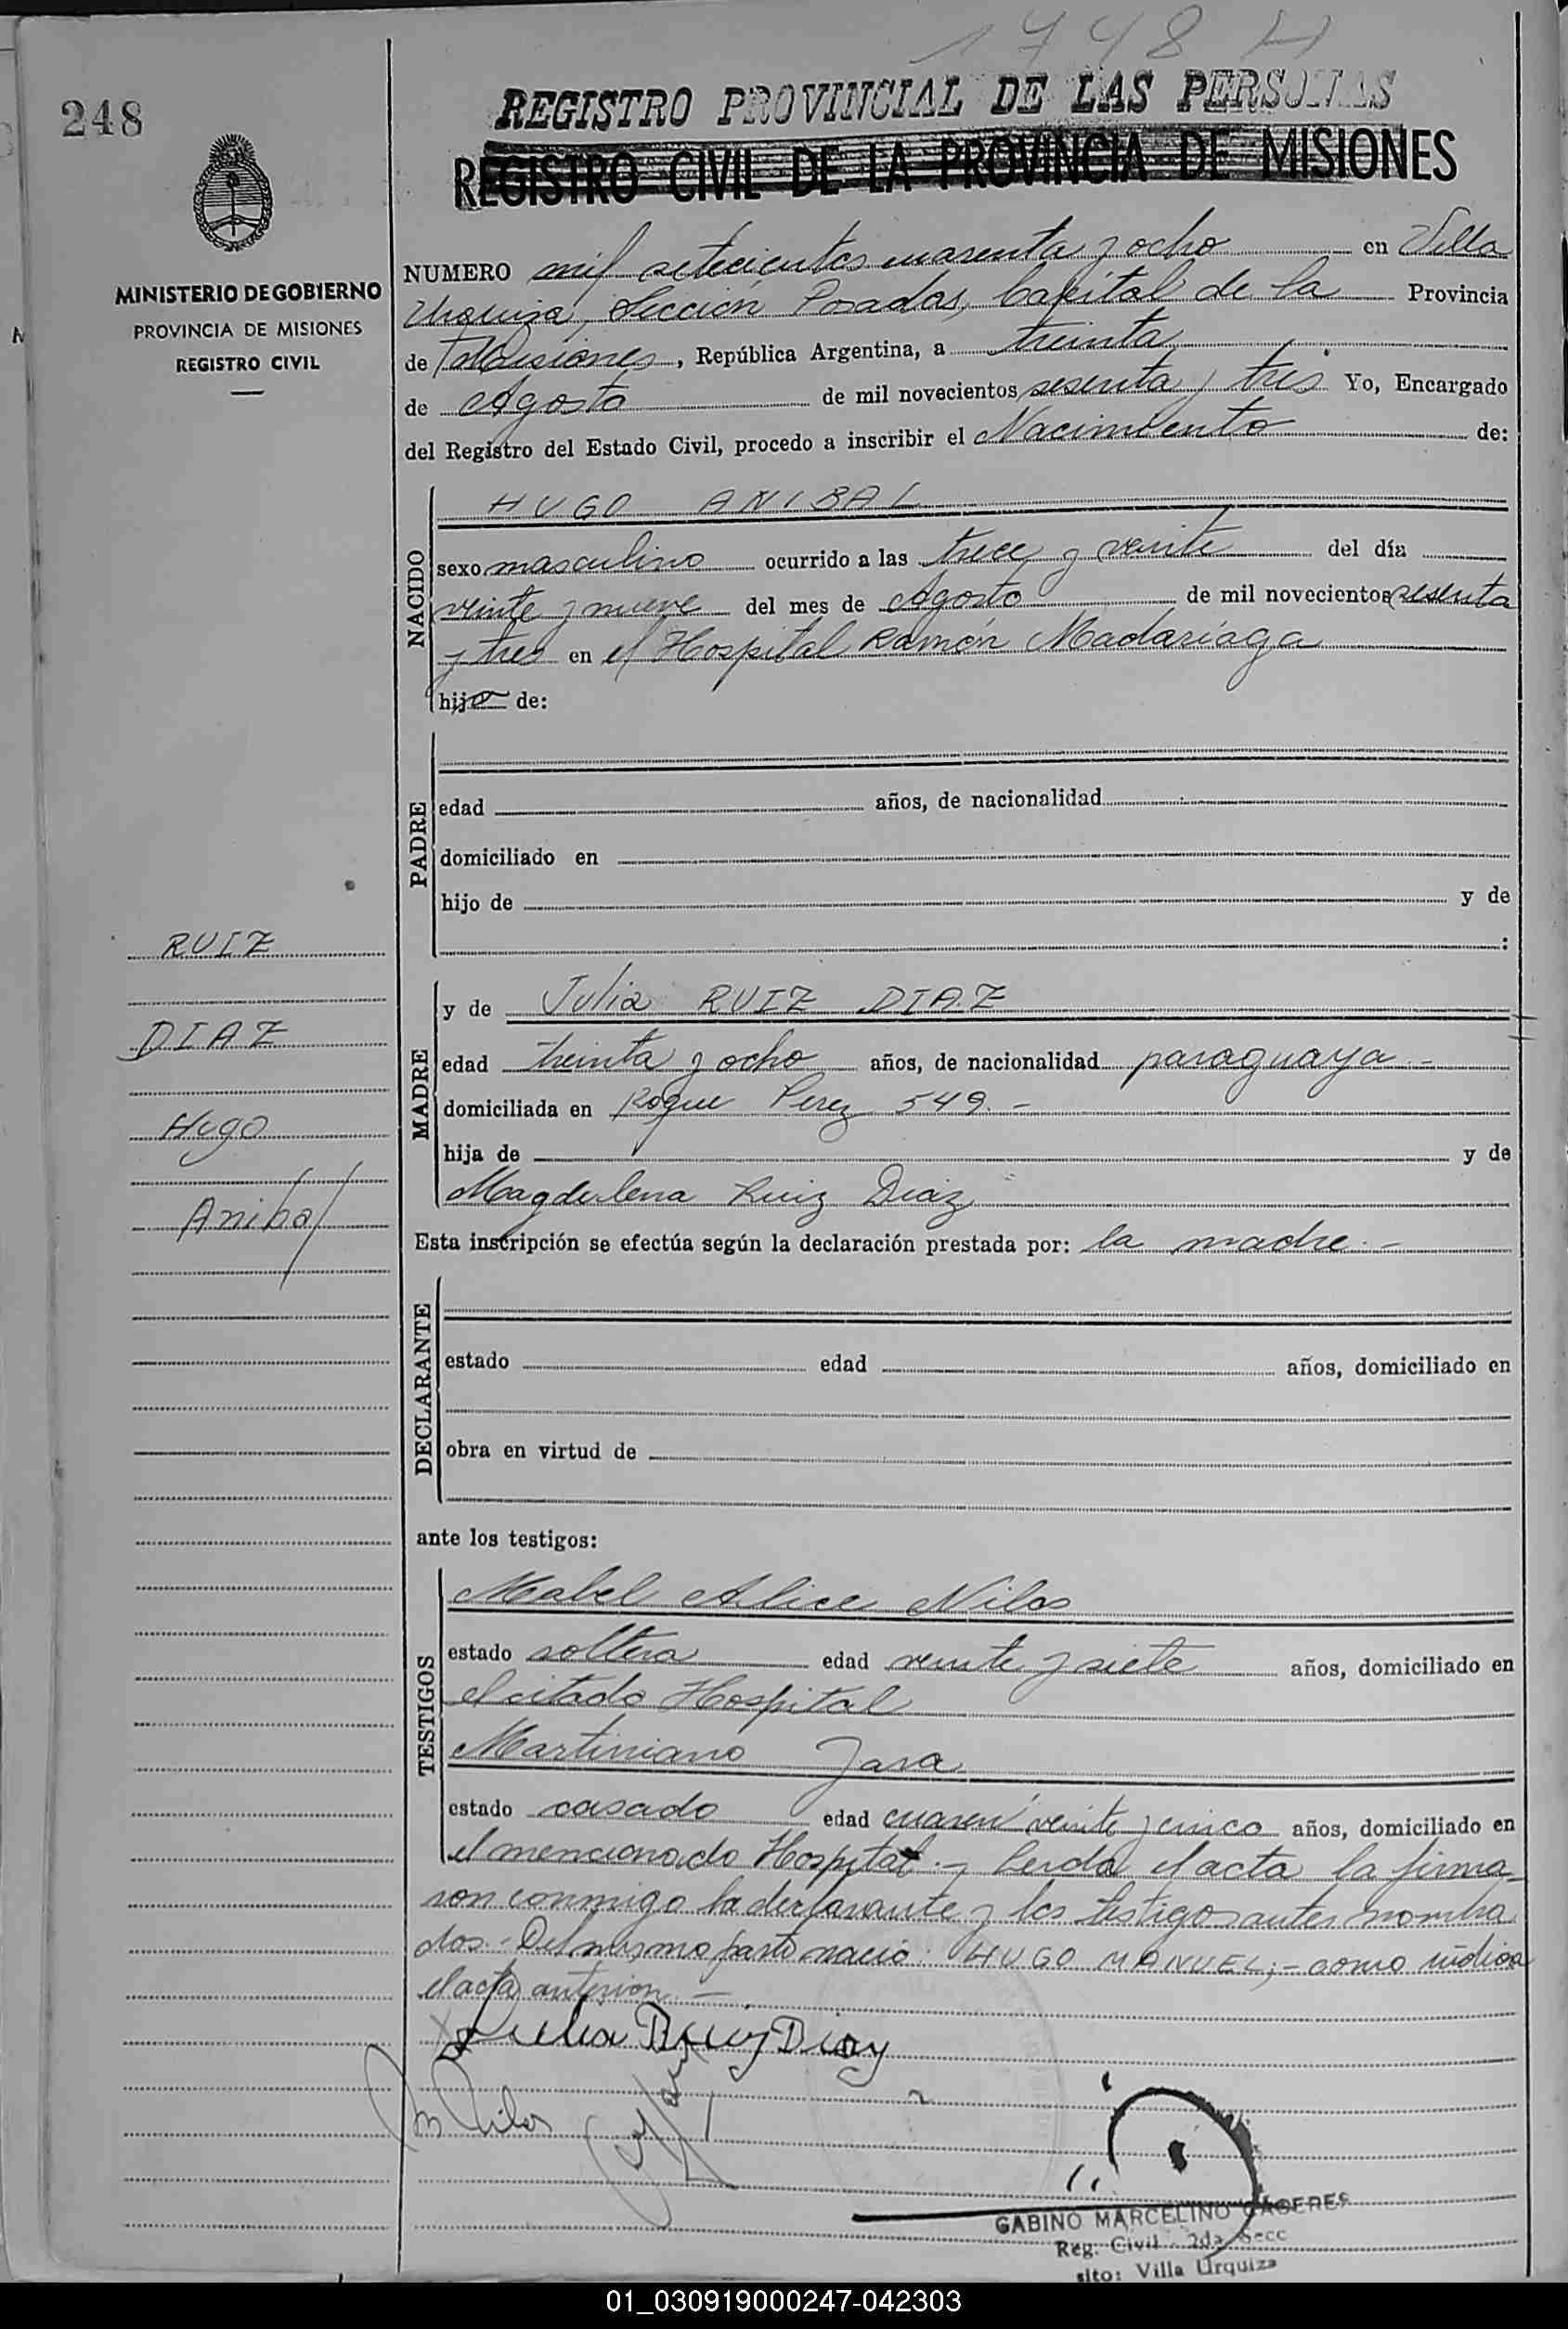 1748 H
248
REGISTRO PROVINCIAL DE LAS PERSONAS
REGISTRO CIVIL DE LA PROVINCIA DE MISIONES
MINISTERIO DE GOBIERNO
PROVINCIA DE MISIONES
REGISTRO CIVIL
NUMERO mil setecientos cuarenta y ocho en Villa
Urquiza, Sección Posadas, Capital de la Provincia
de Misiones, República Argentina, a treinta
de Agosto de mil novecientos sesenta y tres Yo, Encargado
del Registro del Estado Civil, procedo a inscribir el Nacimiento de:
NACIDO
HUGO ANIBAL
sexo masculino ocurrido a las trece y veinte del día
veinte y nueve del mes de Agosto de mil novecientos sesenta
y tres en el Hospital Ramón Madariaga
hijo de:
PADRE
edad años, de nacionalidad
domiciliado en
hijo de y de
:
RUIZ
DIAZ
Hugo
Anibal
MADRE
y de Julia RUIZ DIAZ
edad treinta y ocho años, de nacionalidad paraguaya.-
domiciliada en Roque Perez 549.-
hija de y de
Magdalena Ruiz Diaz
Esta inscripción se efectúa según la declaración prestada por: la madre.-
DECLARANTE
estado edad años, domiciliado en
obra en virtud de
ante los testigos:
TESTIGOS
Mabel Alice Nilos
estado soltera edad veinte y siete años, domiciliado en
el citado Hospital
Martiniano Jara
estado casado edad cuaren veinte y cinco años, domiciliado en
el mencionado Hospital.- Leida el acta la firma-
ron conmigo la declarante y los testigos antes nombra
dos.- Del mismo parto nació: HUGO MANUEL;- como indica
el acta anterior.-
Julia Ruiz Diaz
M Nilos
GABINO MARCELINO CACERES
Reg. Civil - 2da Secc
sito: Villa Urquiza
01_030919000247-042303